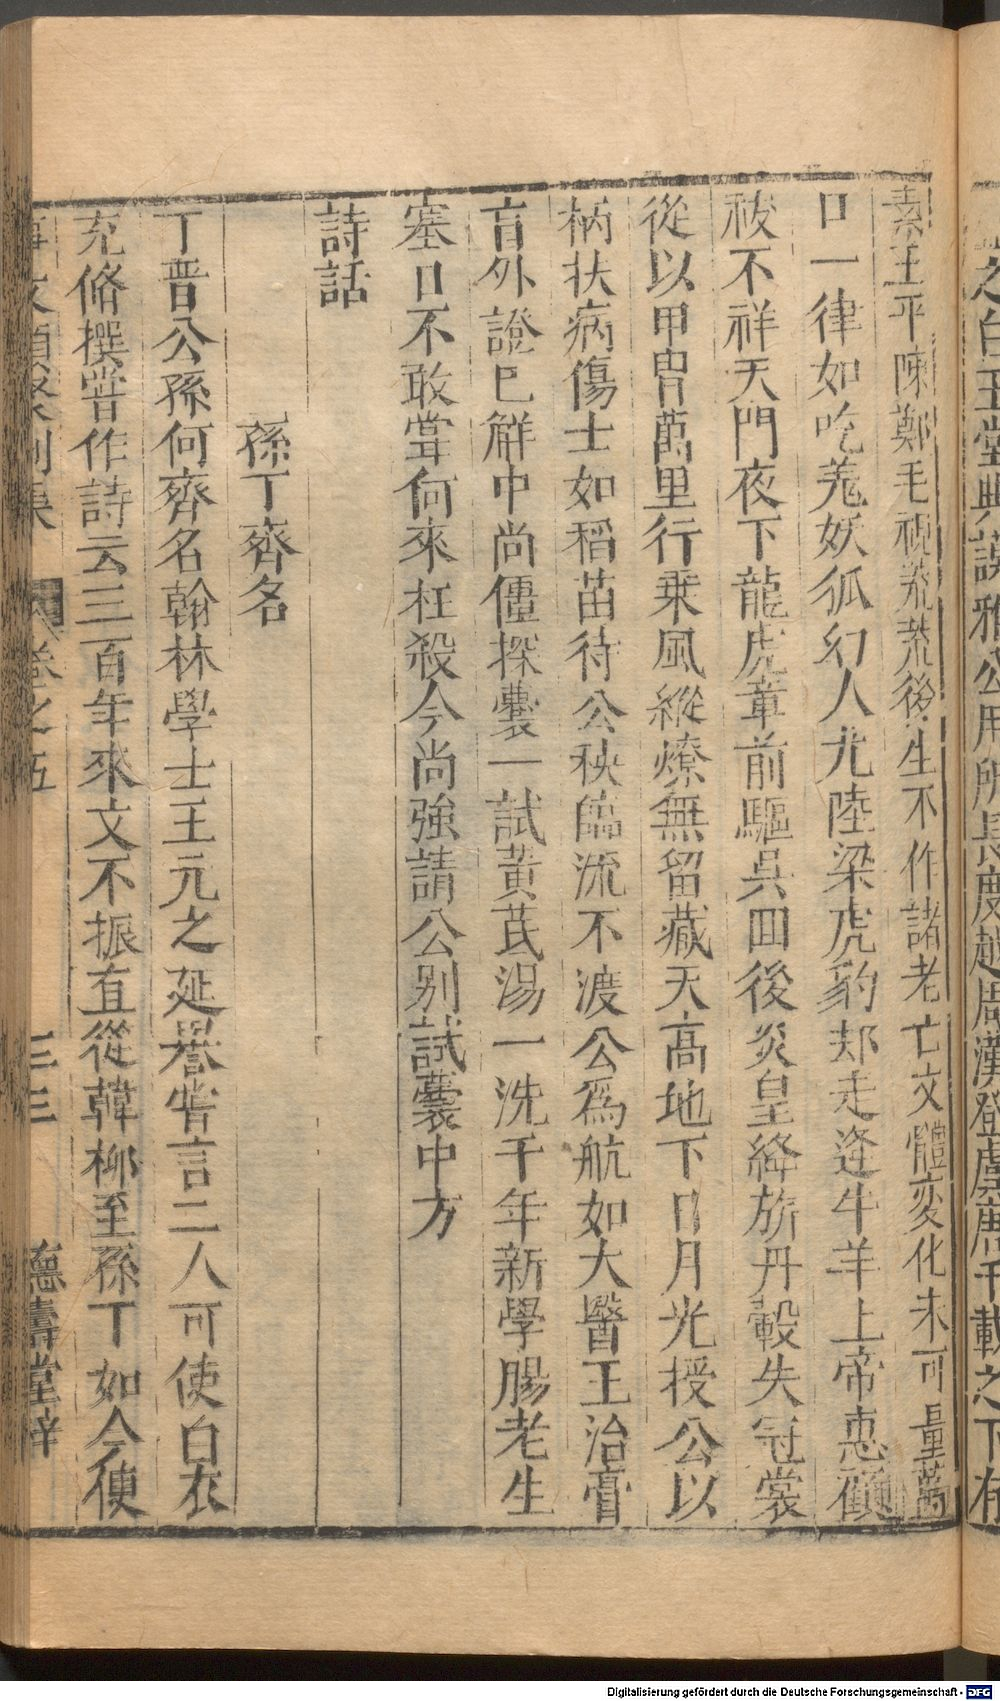 之白玉堂典謨雅公用所長度越周漢登虞唐千載之下有
素王平陳鄭毛視荒荒後生不作諸老亡文體変化未可量萬
口一律如吃羗妖狐幻人尤陸梁虎豹却走逄牛羊上帝惠顧
祓不祥天門夜下龍虎章前驅吳回後炎皇絳旂丹轂失冠裳
從以甲胄萬里行乗風縱燎無留藏天高地下日月光授公以
柄扶病傷士如稻苗待公秧臨流不渡公爲航如大醫王治膏
肓外證已解中尚僵探囊一試黃芪湯一洗千年新學腸老生
塞口不敢甞何來枉殺今尚強請公别試囊中方
詩話
孫丁齊名
丁晋公孫何齊名翰林學士王元之延譽甞言二人可使白衣
充脩撰甞作詩云三百年來文不振直從韓柳至孫丁如今便
事文類聚别集 卷之五 三三 德壽堂梓
Digitalisierung gefördert durch die Deutsche Forschungsgemeinschaft - DFG